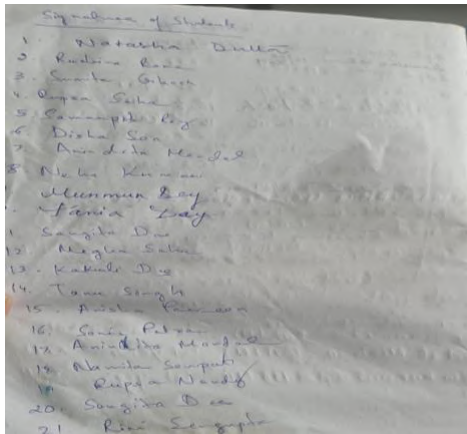 Signatures of Students
1. Natasha Dutta
2. Rudrina
3. Ghosh
4. Rupsa Saha
5. Roy
6. Disha Sen
7. Anindita Mondal
8. Neha Kumari
Munmun Dey
Tania Dey
Sangita Das
12. Megha Saha
13. Kakali Das
14. Tanu Singh
15. Anisha
16.
17. Anindita Mondal
18. Namita Sampui
19. Rupsa Nandy
20. Sangita Das
21. Sengupta